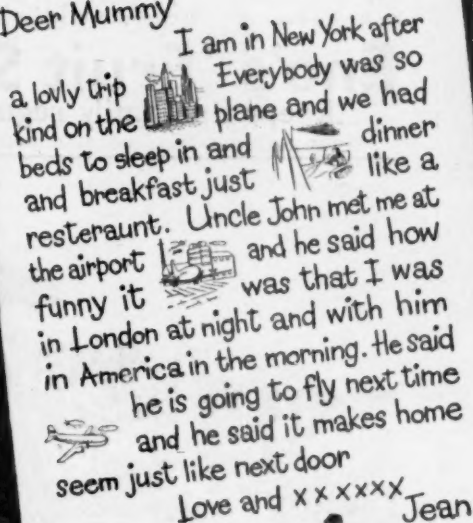 Deer Mummy
I am in New York after
a lovly trip Everybody was so
kind on the plane and we had
beds to sleep in and dinner
and breakfast just like a
resteraunt. Uncle John met me at
the airport and he said how
funny it was that I was
in London at night and with him
in America in the morning. He said
he is going to fly next time
and he said it makes home
seem just like next door
Love and x x x x x x
Jean